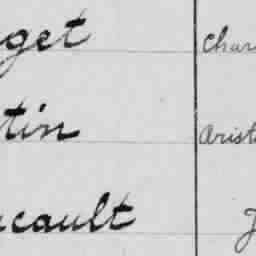 get Char
tin Arist
cault J